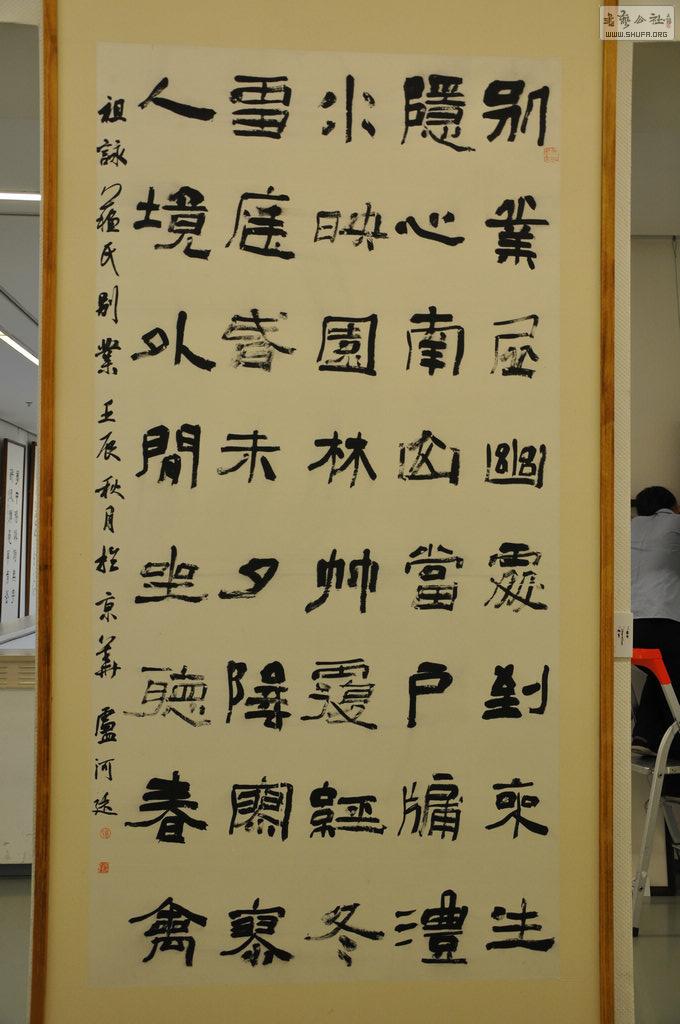 別業居幽處到來生
隱心南山當戶牖澧
水映園林竹覆經冬
雪庭昏未夕陰寥寥
人境外閒坐聽春禽
祖詠蘇氏別業 壬辰秋月於京華 盧河
书藝公社
WWW.SHUFA.ORG